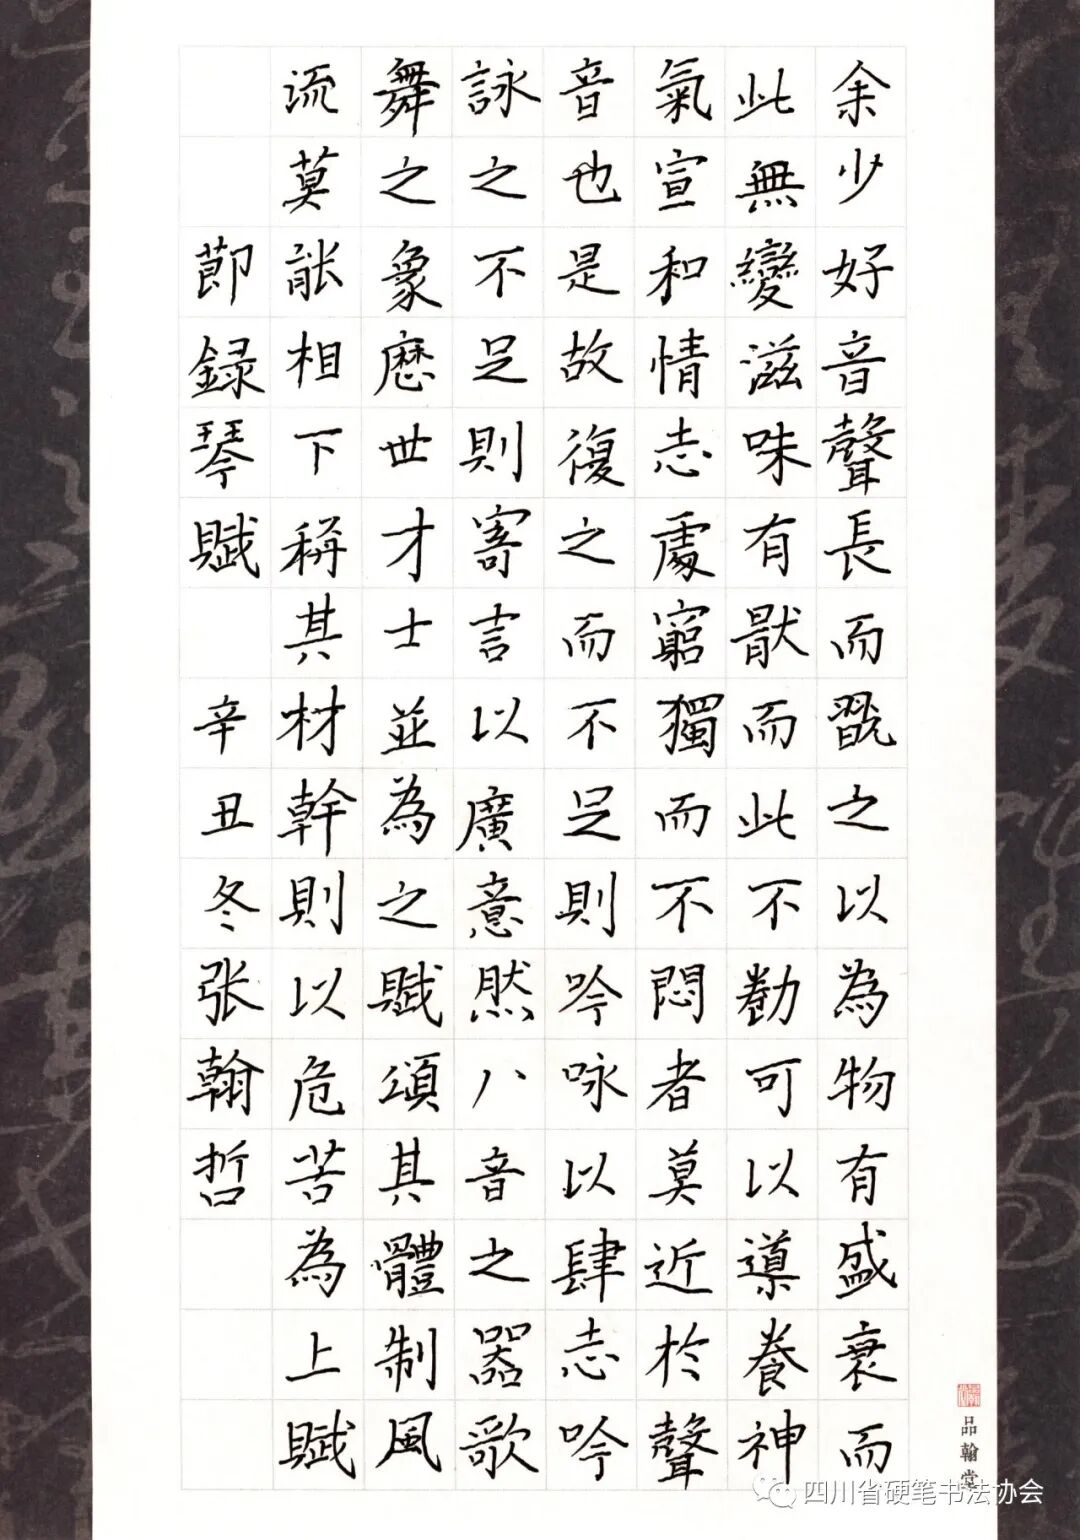 余少好音聲長而翫之以為物有盛衰而
此無變滋味有猒而此不勌可以導養神
氣宣和情志處窮獨而不悶者莫近於聲
音也是故復之而不足則吟咏以肆志吟
詠之不足則寄言以廣意然八音之器歌
舞之象歷世才士並為之賦頌其體制風
流莫能相下稱其材幹則以危苦為上賦
節録琴賦 辛丑冬张翰哲
品翰堂
四川省硬笔书法协会